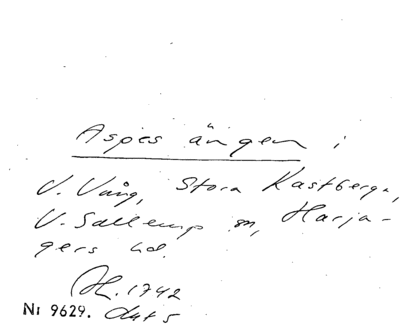 Aspes ängen i
V. Vång, Stora Kastberga,
V. Sallerup sn, Harja-
gers hd.
LH. 1742
Nr 9629. Lut 5